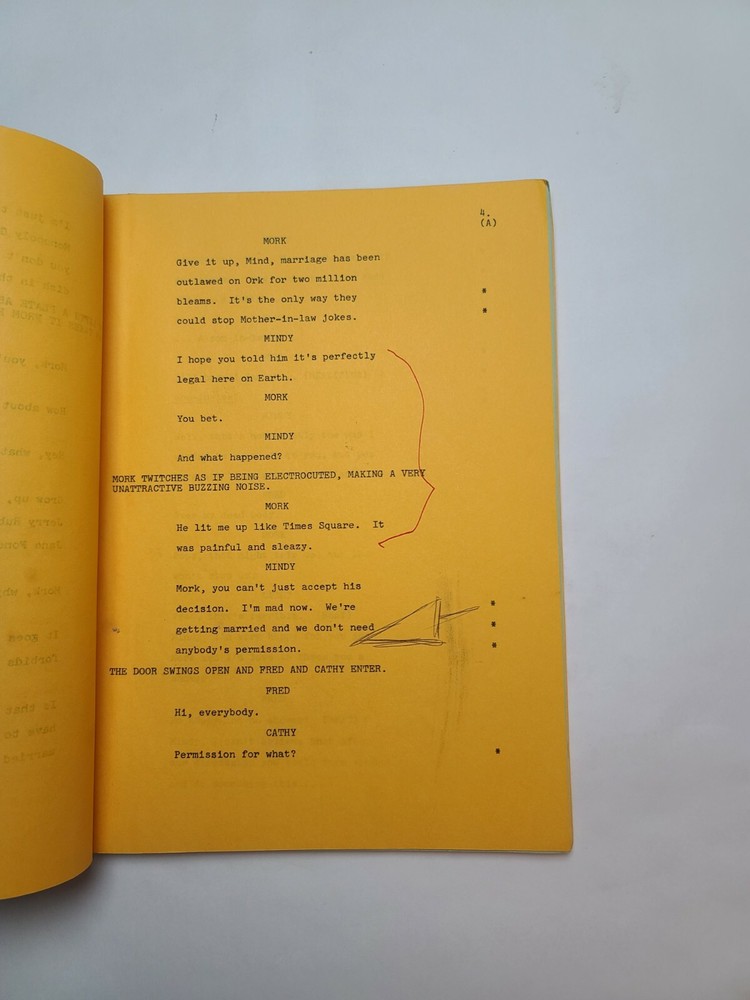 4.
(A)
MORK
Give it up, Mind, marriage has been
outlawed on Ork for two million
bleams.  It's the only way they *
could stop Mother-in-law jokes. *
MINDY
I hope you told him it's perfectly
legal here on Earth.
MORK
You bet.
MINDY
And what happened?
MORK TWITCHES AS IF BEING ELECTROCUTED, MAKING A VERY
UNATTRACTIVE BUZZING NOISE.
MORK
He lit me up like Times Square.  It
was painful and sleazy.
MINDY
Mork, you can't just accept his
decision.  I'm mad now.  We're *
getting married and we don't need *
anybody's permission. *
THE DOOR SWINGS OPEN AND FRED AND CATHY ENTER.
FRED
Hi, everybody.
CATHY
Permission for what? *